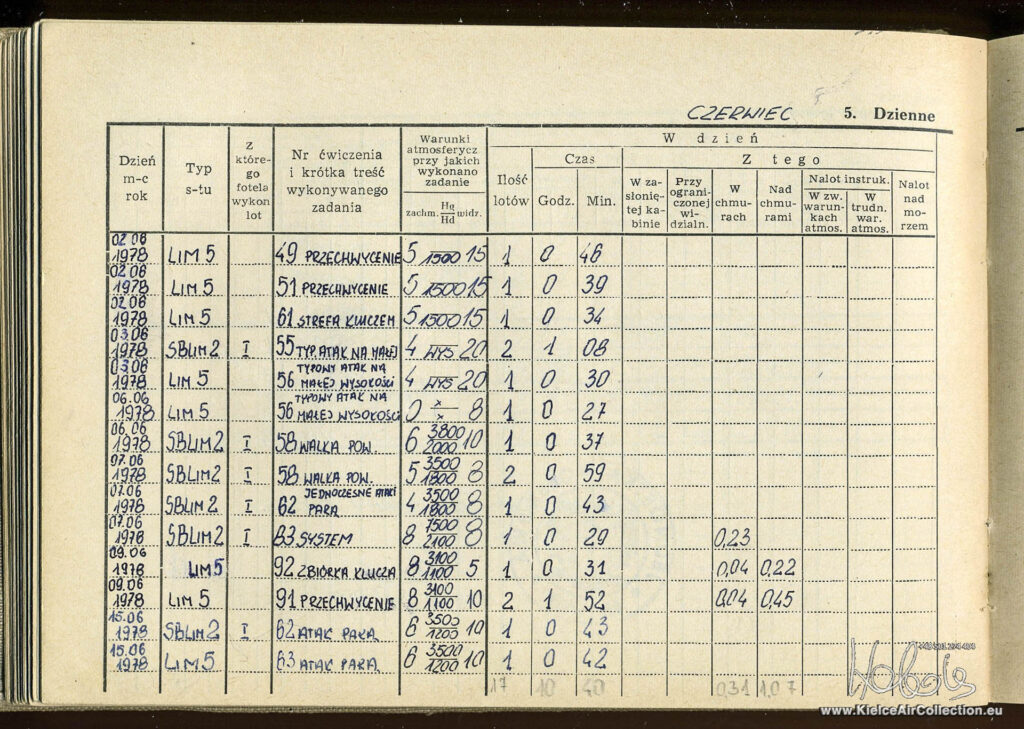 CZERWIEC 5. Dzienne
Dzień m-c rok
Typ s-tu
Z które-go fotela wykon lot
Nr ćwiczenia i krótka treść wykonywanego zadania
Warunki atmosferycz przy jakich wykonano zadanie
zachm. Hg/Hd widz.
W dzień
Ilość lotów
Czas
Godz. Min.
Z tego
W za-słonię-tej ka-binie
Przy ograni-czonej wi-dzialn.
W chmu-rach
Nad chmu-rami
Nalot instruk.
W zw. warun-kach atmos.
W trudn. war. atmos.
Nalot nad mo-rzem
02.06 1978 LIM 5 49 PRZECHWYCENIE 5 1500 15 1 0 46
02.06 1978 LIM 5 51 PRZECHWYCENIE 5 1500 15 1 0 39
02.06 1978 LIM 5 61 STREFA KLUCZEM 5 1500 15 1 0 34
03.06 1978 SBLIM 2 I 55 TYP. ATAK NA MAŁEJ 4 WYS 20 2 1 08
03.06 1978 LIM 5 56 TYPOWY ATAK NA MAŁEJ WYSOKOŚCI 4 WYS 20 1 0 30
06.06 1978 LIM 5 56 TYPOWY ATAK NA MAŁEJ WYSOKOŚCI 0 x/x 8 1 0 27
06.06 1978 SBLIM 2 I 58 WALKA POW. 6 3800/2000 10 1 0 37
07.06 1978 SBLIM 2 I 58 WALKA POW. 5 3500/1800 8 2 0 59
07.06 1978 SBLIM 2 I 62 JEDNOCZESNE ATAKI PARĄ 4 3500/1800 8 1 0 43
07.06 1978 SBLIM 2 I 83 SYSTEM 8 7500/2100 8 1 0 29 0,23
09.06 1978 LIM 5 92 ZBIÓRKA KLUCZA 8 3100/1100 5 1 0 31 0,04 0,22
09.06 1978 LIM 5 91 PRZECHWYCENIE 8 3100/1100 10 2 1 52 0,04 0,45
15.06 1978 SBLIM 2 I 62 ATAK PARĄ 6 3500/1200 10 1 0 43
15.06 1978 LIM 5 63 ATAK PARĄ 6 3500/1200 10 1 0 42
17 10 40 0,31 1,07
www.KielceAirCollection.eu